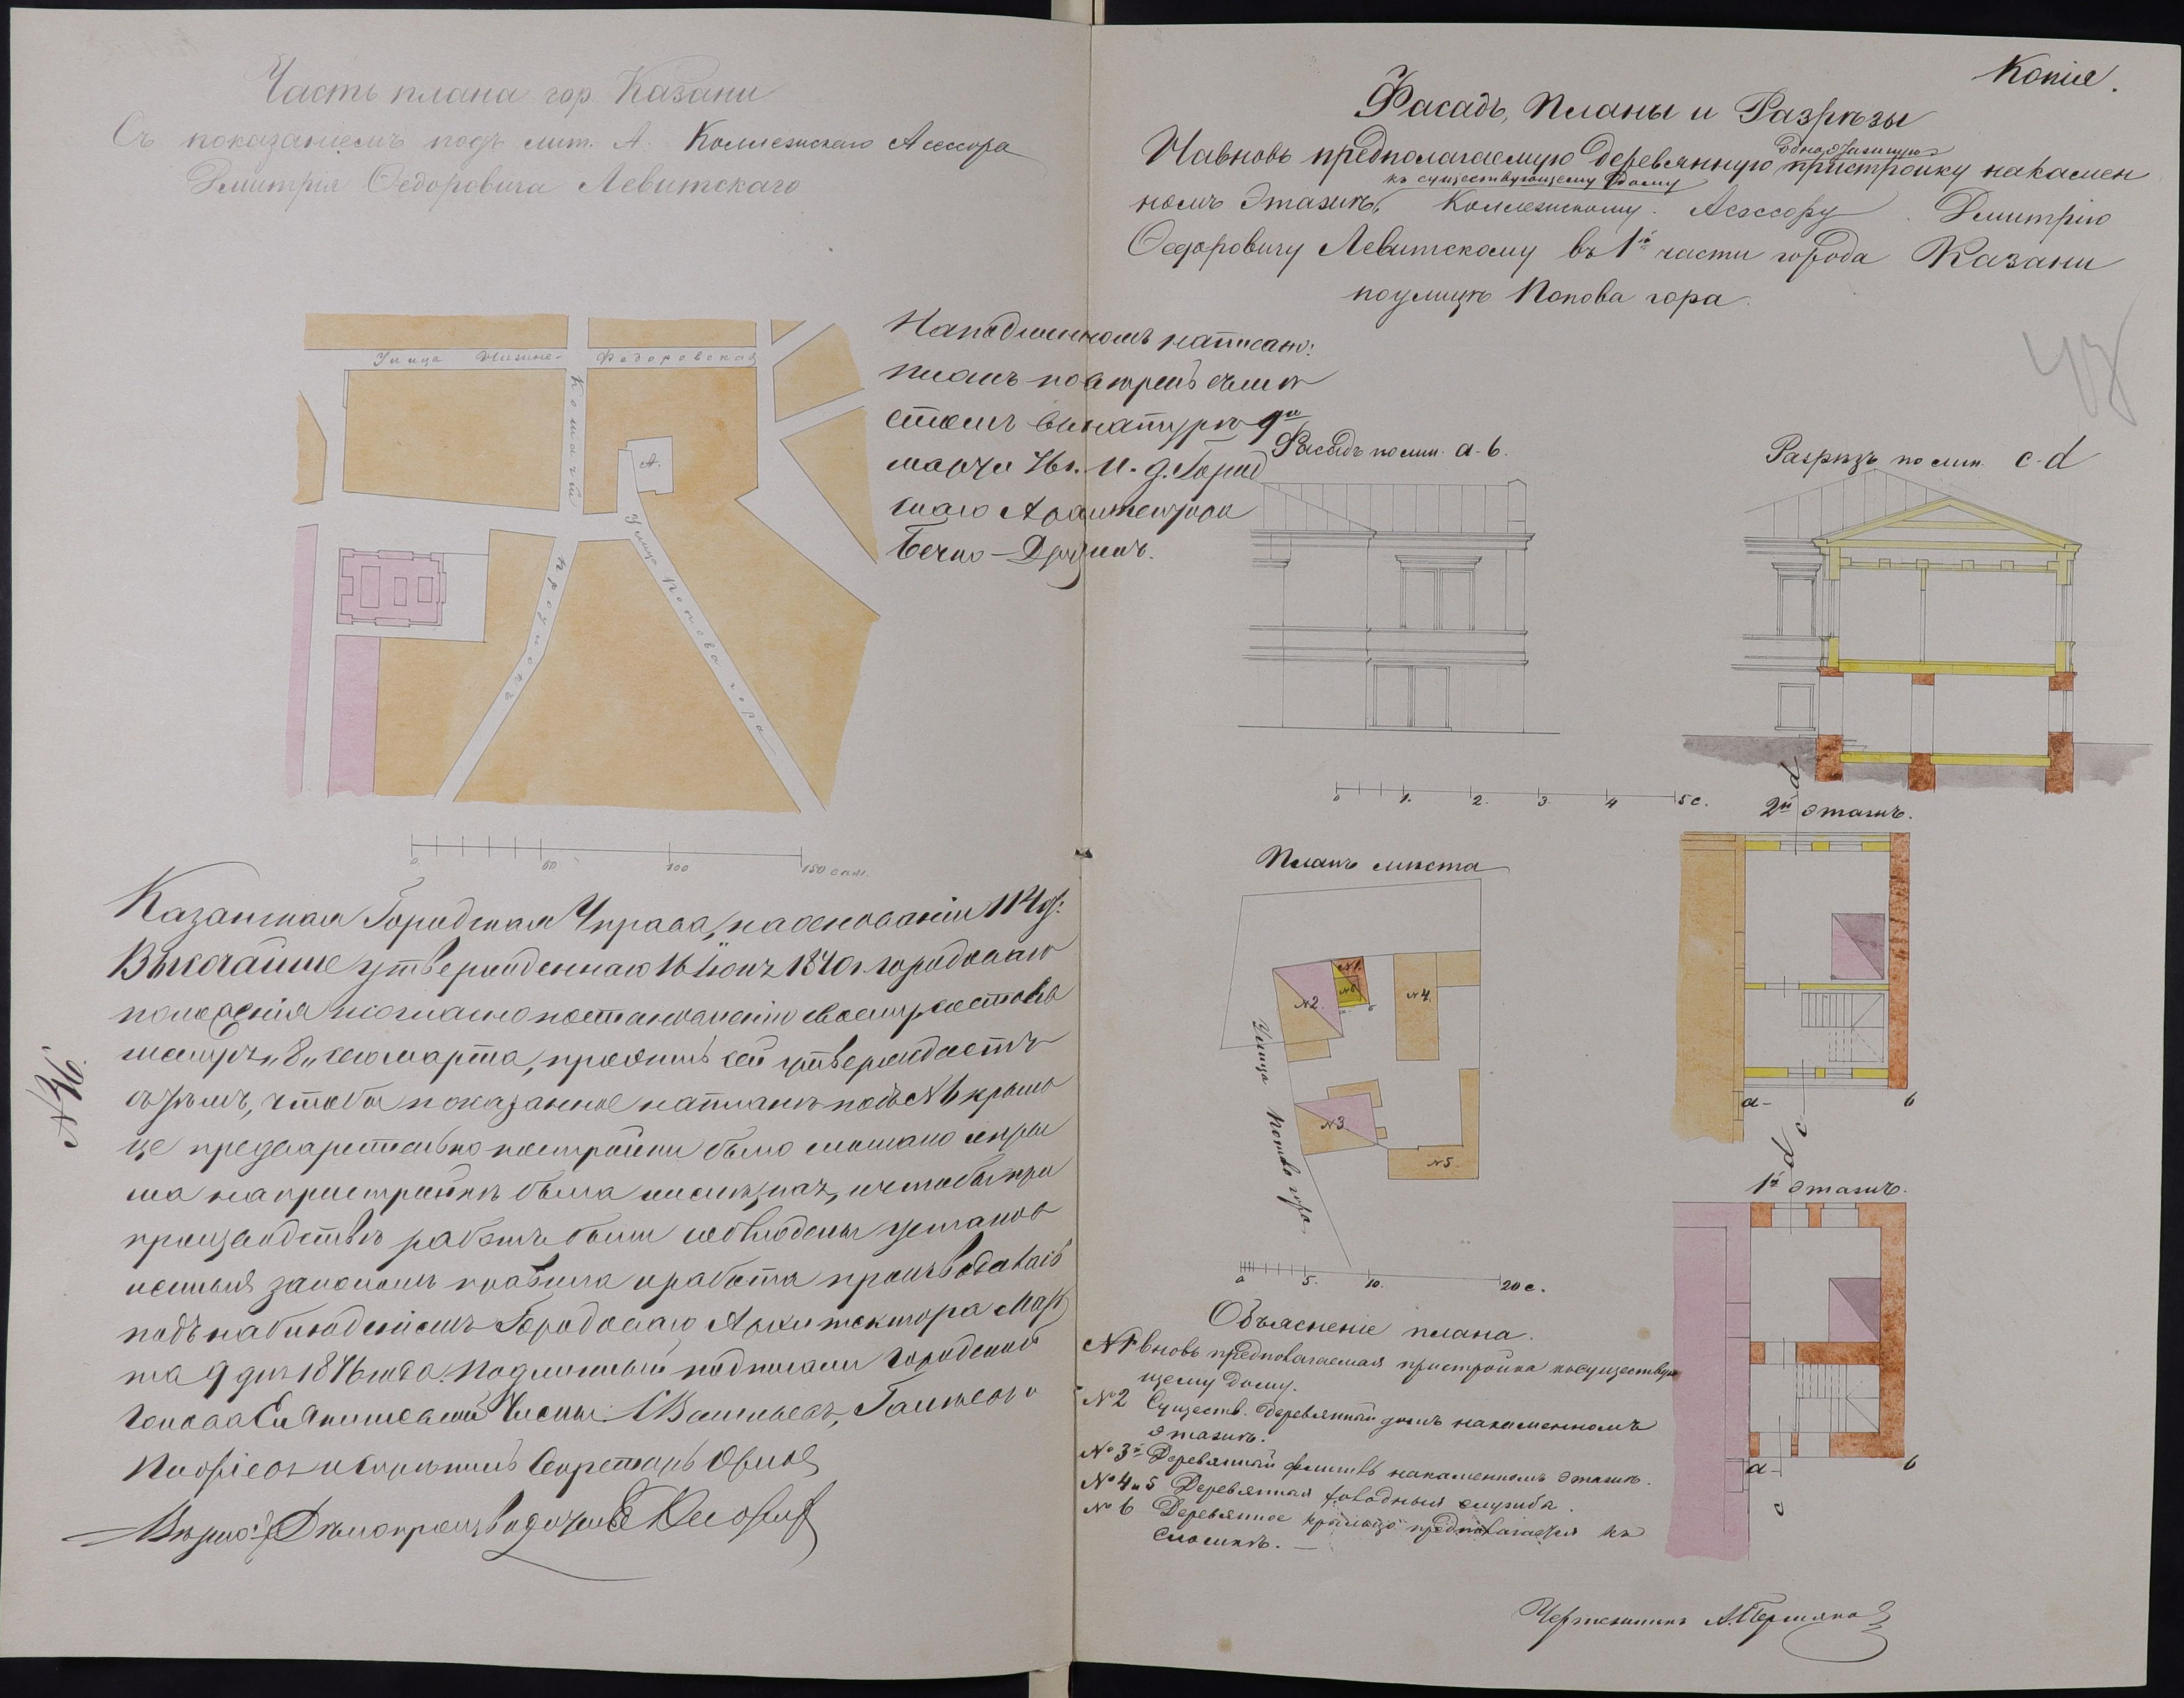 Часть плана гор. Казани
Съ показаніемъ подъ лит. А. Коллежскаго Ассесора
Дмитрія Ѳедоровича Левитскаго
Улица Нижне-Федоровская
Комисаріат
А.
Проулокъ
Улица Попова гора
0 50 100 150 саж.
№ 36.
Казанская Городская Управа, на основаніи 114 ст.
Высочайше утвержденнаго 16 Іюня 1870 г. городоваго
положенія и согласно постановленію своему, состояв
шемуся "8" сего марта, проэктъ сей утверждаетъ
съ тѣмъ, чтобы показанное на планѣ подъ № 6 крыль
це предварительно постройки было сломано и кры
ша на пристройкѣ была желѣзная, и чтобы при
производствѣ работъ были соблюдены установ
ленныя закономъ правила и работа производилась
подъ наблюденіемъ Городоваго Архитектора Мар
та 9 дня 1876 года. Подлинный подписали: Городской
Голова Янишевскій Члены: Васильевъ,
и скрѣпилъ Секретарь
Вѣрно: Дѣлопроизводитель
Копія.
Фасадъ, Планы и Разрѣзы
На вновь предполагаемую деревянную одноэтажную пристройку на камен
номъ этажѣ, къ существующему дому Коллежскому Асессору Дмитрію
Ѳедоровичу Левитскому въ 1й части города Казани
по улицѣ Попова гора.
На подлинномъ написано:
планъ повѣренъ съ мѣ
стомъ въ натурѣ 9го
марта 76 г. И. д. Город
скаго Архитектора
Бечко-Друзинъ.
Фасадъ по лин. a-b.
Разрѣзъ по лин. c-d
0 1. 2. 3. 4 5 с.
Планъ мѣста
№1.
№6
№2.
№4.
№3
№5.
Улица Попова гора.
0 5. 10. 20 с.
2й этажъ.
d
a- b
c
1й этажъ.
d
a- b
c
Объясненіе плана.
№1 вновь предполагаемая пристройка къ существую
щему дому.
№2 Существ. деревянный домъ на каменномъ
этажѣ.
№3й Деревянный флигель на каменномъ этажѣ.
№4 и 5 Деревянныя холодныя службы.
№6 Деревянное крыльцо предполагается къ
сломкѣ.
Чертежникъ А. Пермяковъ